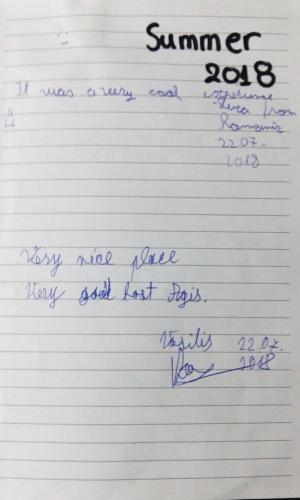 Summer
2018
It was a very cool experience
Luca from
Romania
22.07.
2018
Very nice place
Very good host Agis.
Vasilis 22.07.
2018